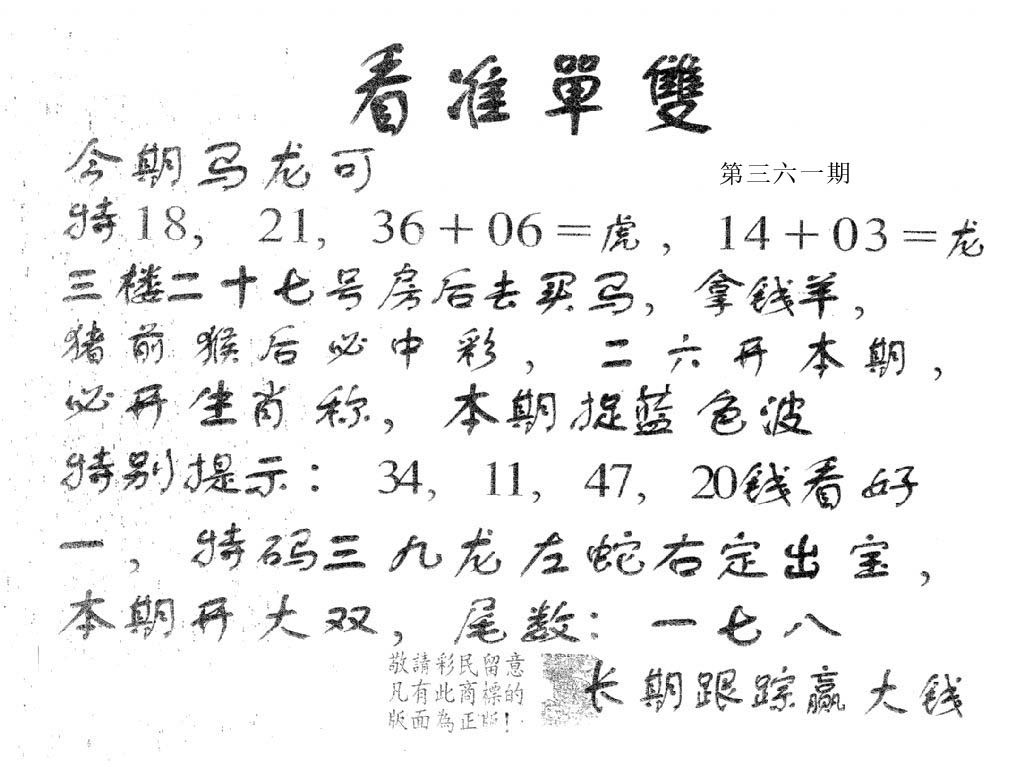 看准單雙
今期马龙可
第三六一期
特18, 21, 36+06=虎, 14+03=龙
三楼二十七号房后去买马, 拿钱羊,
猪前猴后必中彩, 二六开本期,
必开生肖称, 本期捉蓝色波
特别提示: 34, 11, 47, 20钱看好
一, 特码三九龙左蛇右定出宝,
本期开大双, 尾数: 一七八
敬請彩民留意
凡有此商標的
版面為正版!
长期跟踪赢大钱